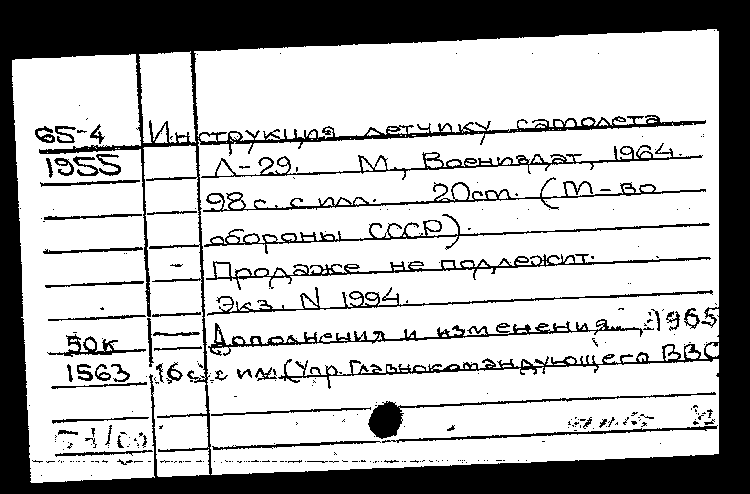 65-4 Инструкция летчику самолета
1955 Л-29. М., Воениздат, 1964.
98 с. с илл. 20 см. (М-во
обороны СССР).
- Продаже не подлежит.
Экз. N 1994.
50к — Дополнения и изменения..., 1965
1563 16 с. с илл. (Упр. Главнокомандующего ВВС